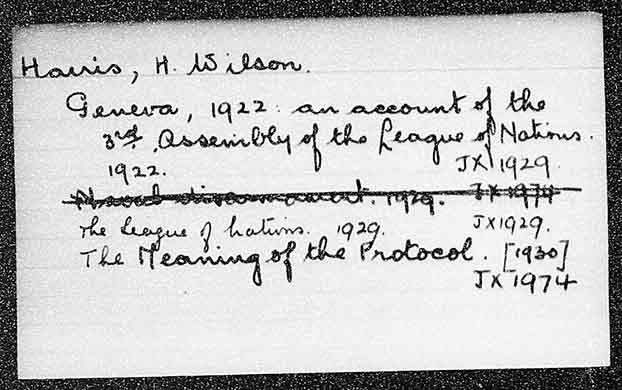 Harris, H. Wilson.
Geneva, 1922: an account of the
3rd. Assembly of the League of Nations.
1922. JX 1929.
Naval disarmament. 1929. JX 1974
The League of Nations. 1929. JX1929.
The Meaning of the Protocol. [1930]
JX 1974